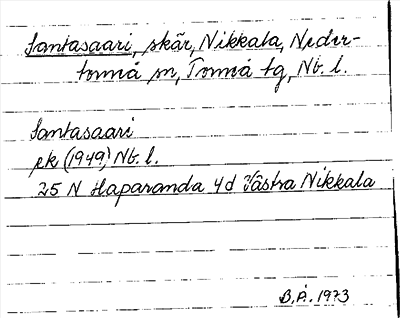 Santasaari, skär, Nikkala, Neder-
torneå sn, Torneå tg, Nb. l.
Santasaari
ek (1949) Nb. l.
25 N Haparanda 4d Västra Nikkala
B.Å. 1973